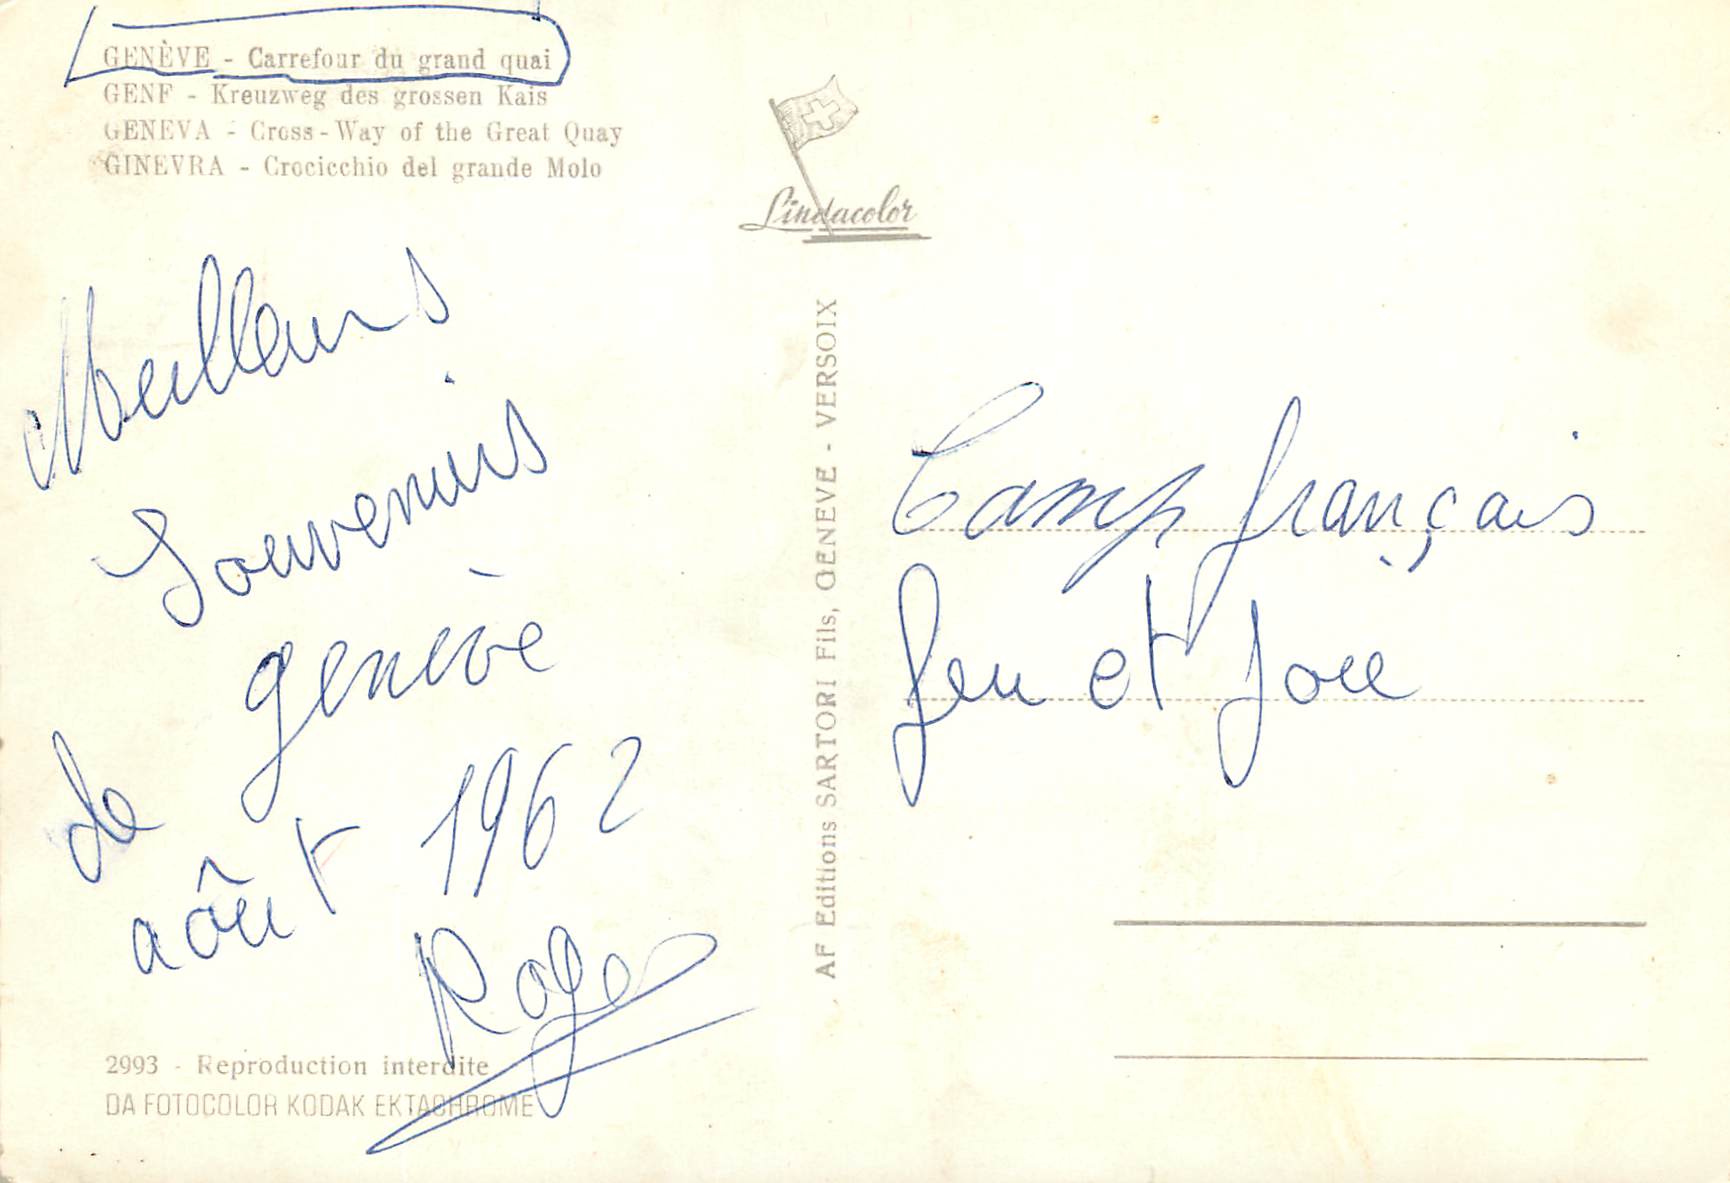 GENÈVE - Carrefour du grand quai
GENF - Kreuzweg des grossen Kais
GENEVA - Cross-Way of the Great Quay
GINEVRA - Crocicchio del grande Molo
Lindacolor
Meilleurs
Souvenirs
de genève
août 1962
Roger
2993 - Reproduction interdite
DA FOTOCOLOR KODAK EKTACHROME
AF Editions SARTORI Fils, GENEVE - VERSOIX
Camp français
feu et Joie